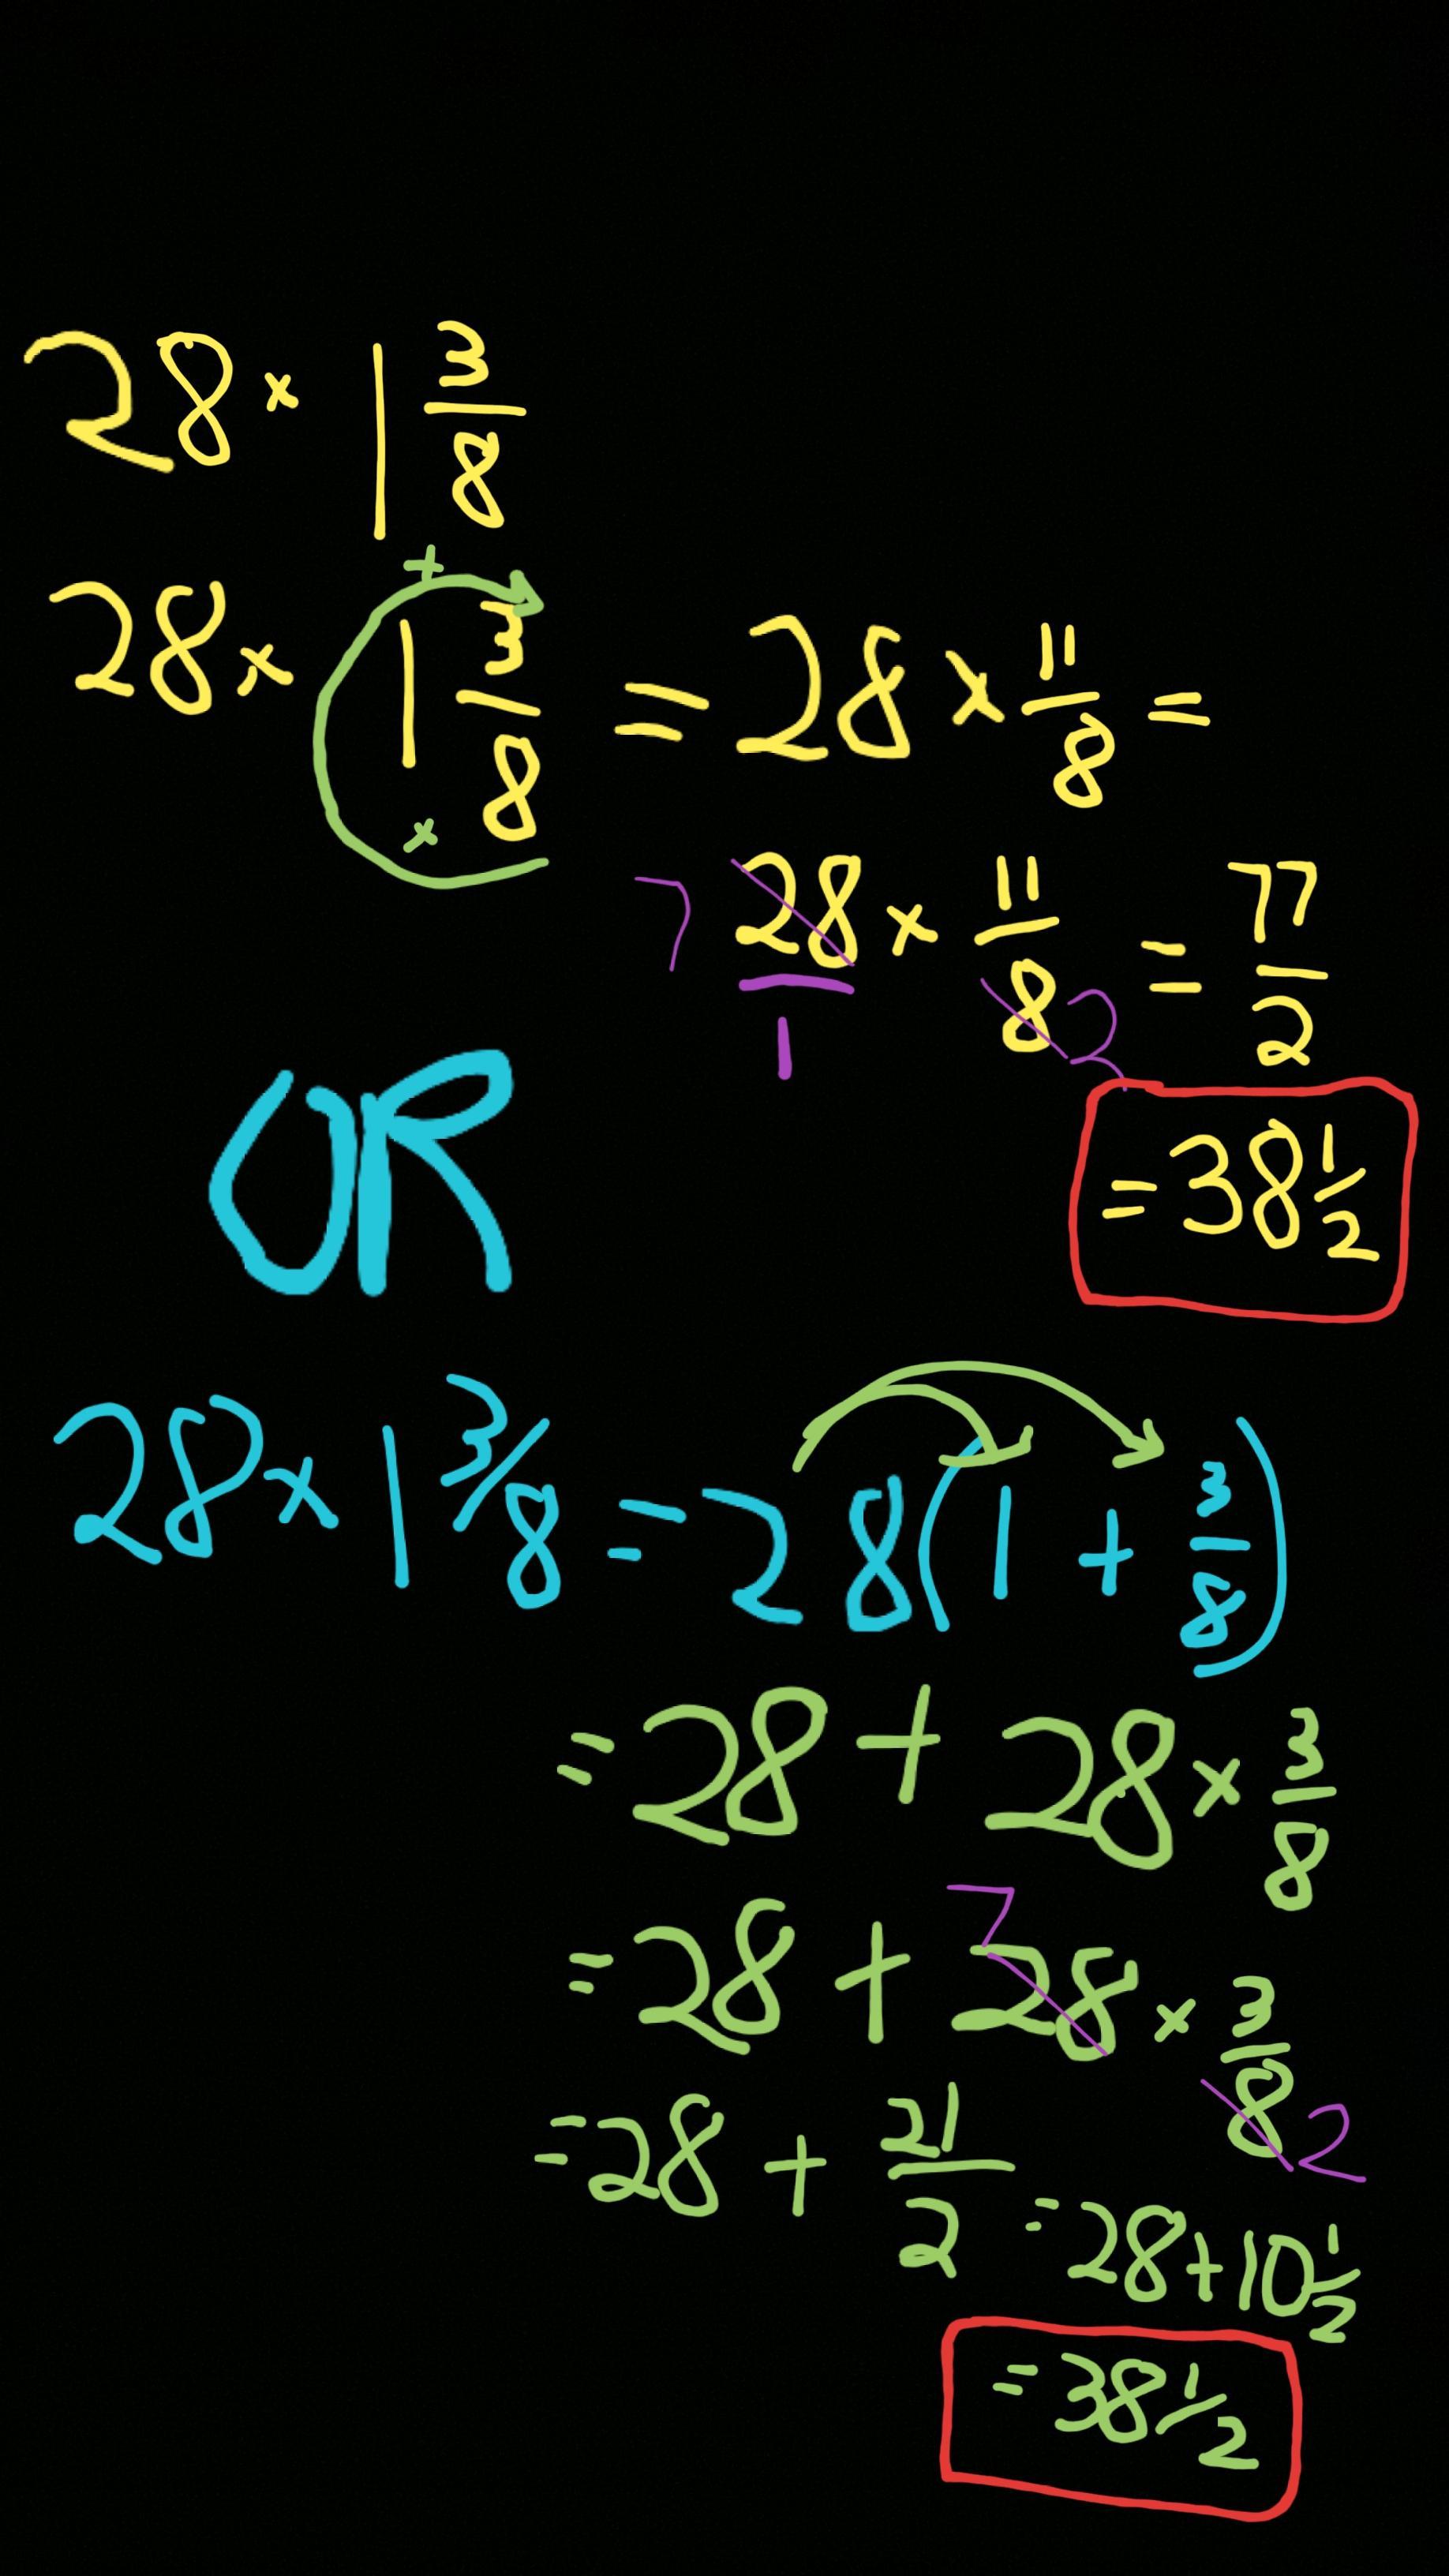 28 × 1 3/8
28 × 1 3/8 = 28 × 11/8 =
+
×
7 28/1 × 11/8 2 = 77/2
= 38 1/2
OR
28 × 1 3/8 = 28(1 + 3/8)
= 28 + 28 × 3/8
= 28 + 7 28 × 3/8 2
= 28 + 21/2 = 28 + 10 1/2
= 38 1/2